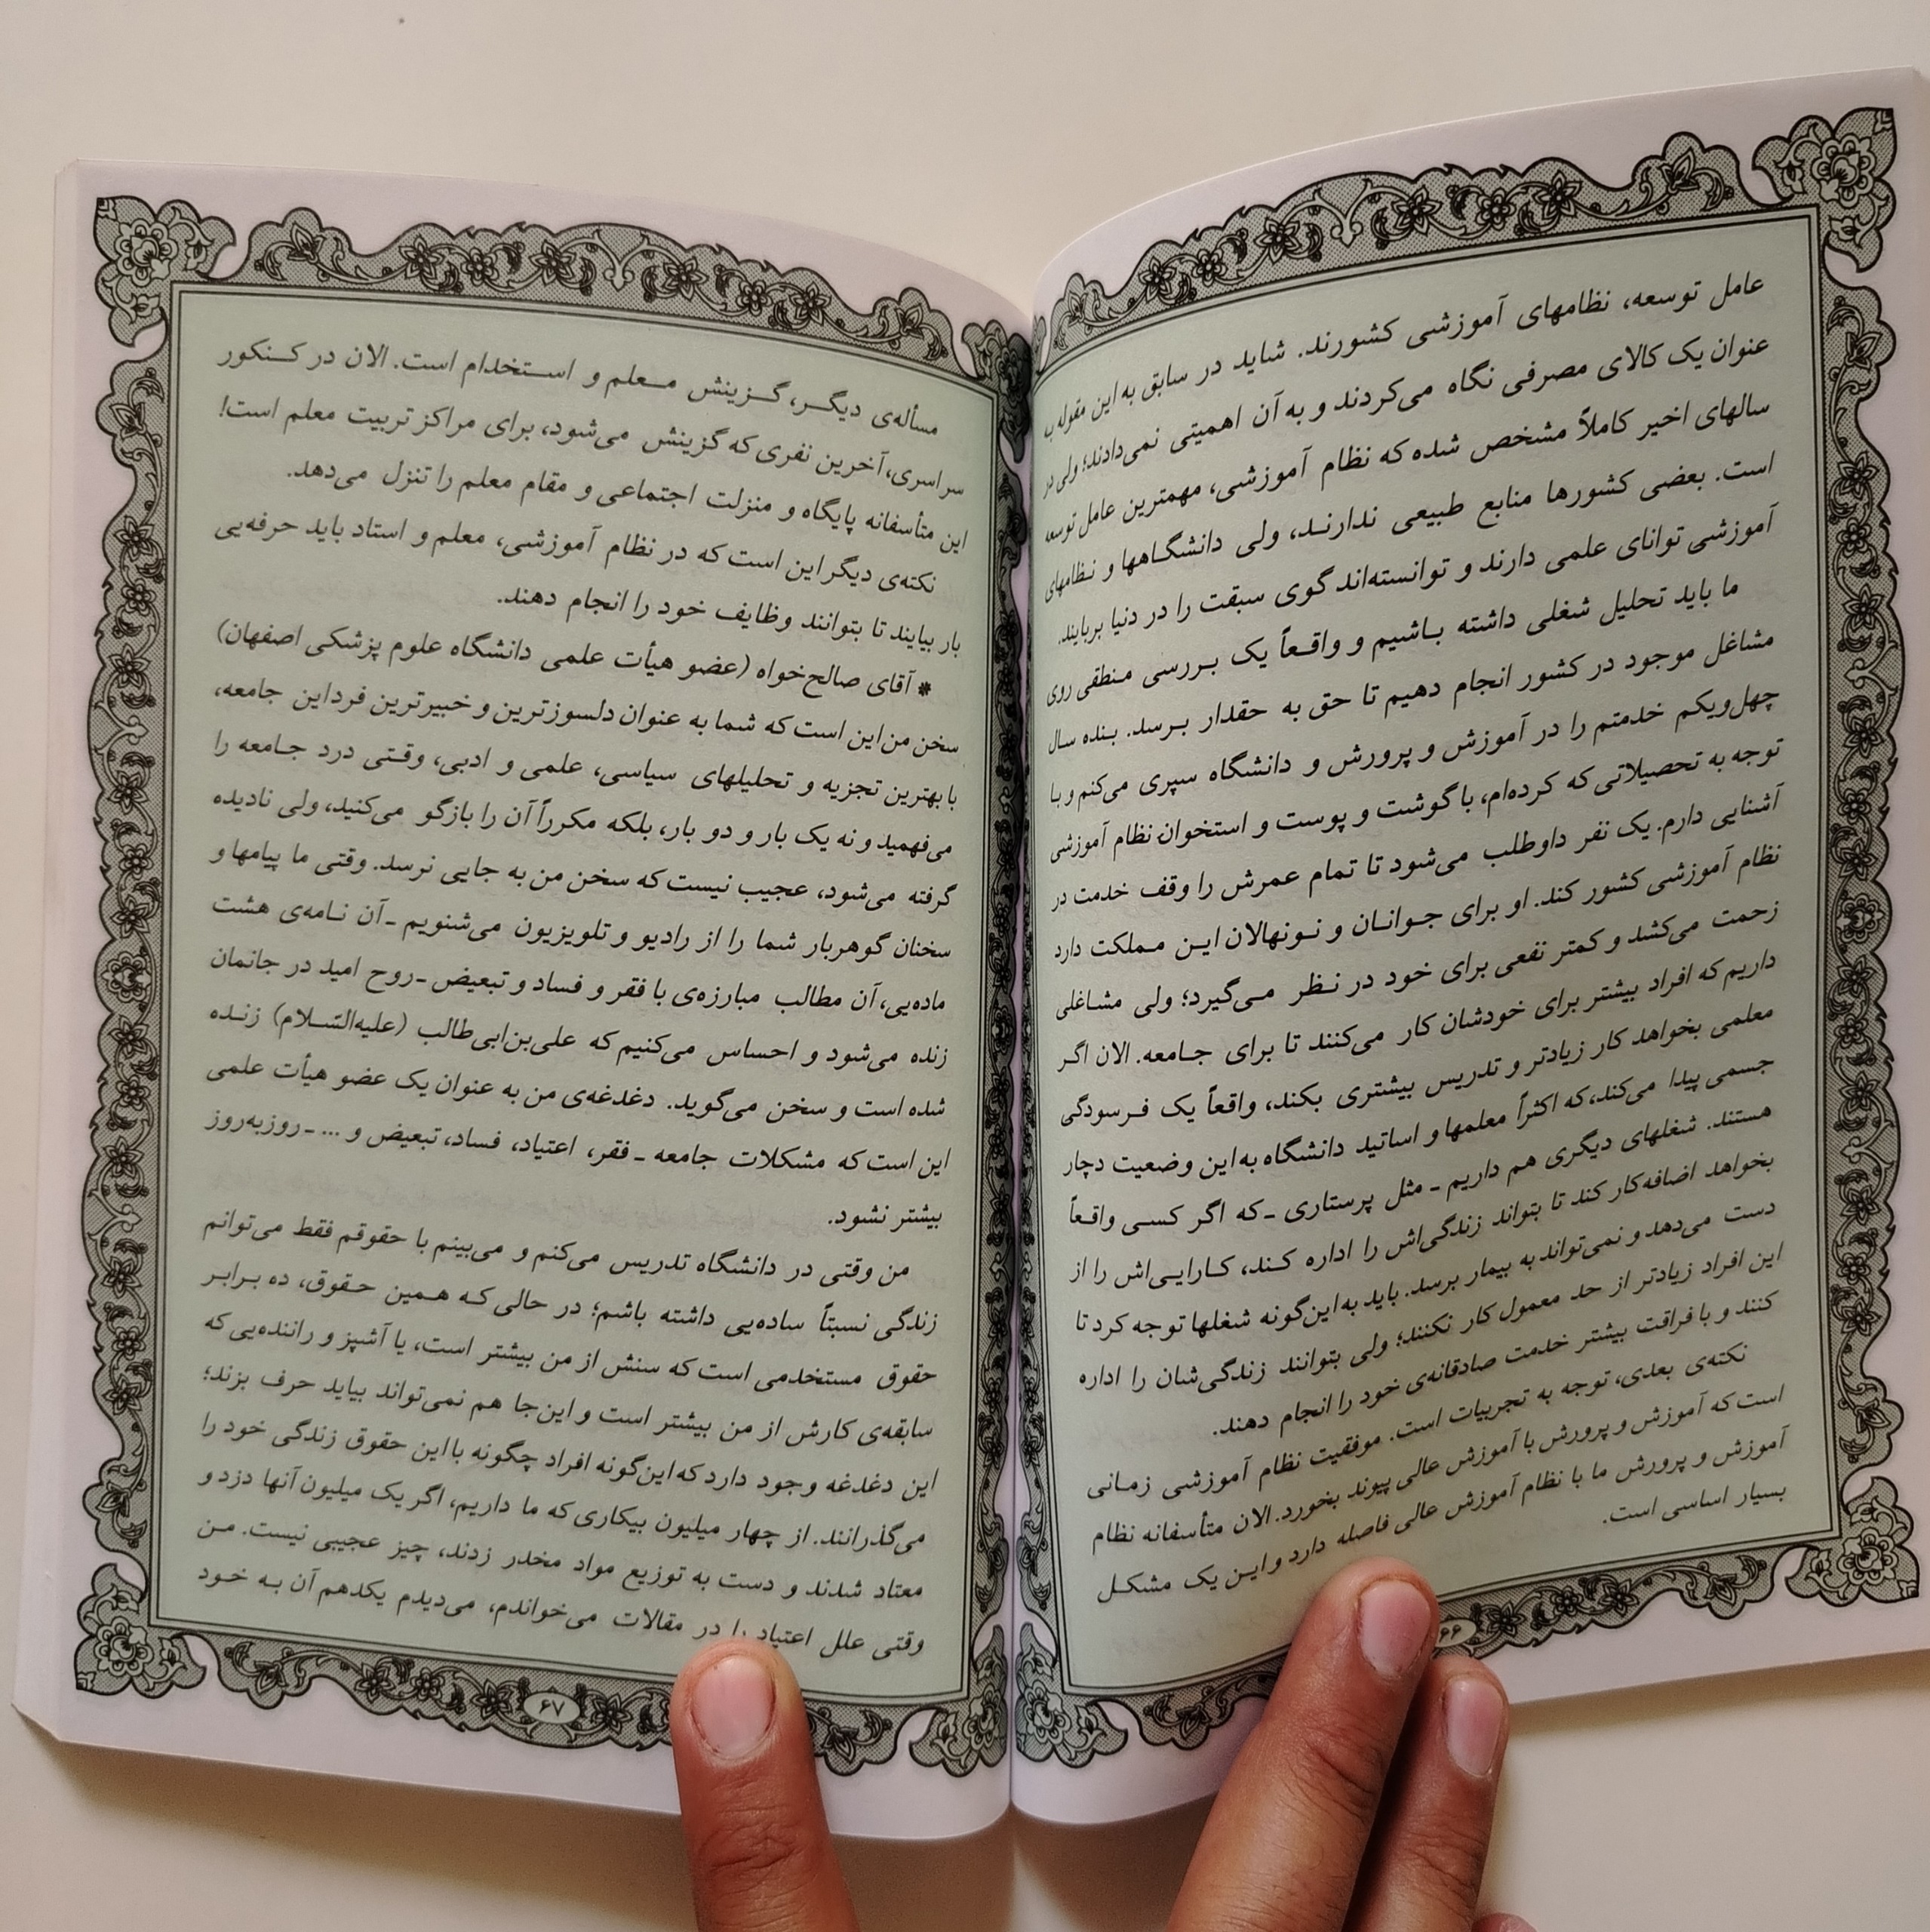 عامل توسعه، نظامهای آموزشی کشورند. شاید در سابق به این مقوله ب
عنوان یک کالای مصرفی نگاه می‌کردند و به آن اهمیتی نمی‌دادند؛ ولی در
سالهای اخیر کاملاً مشخص شده که نظام آموزشی، مهمترین عامل توسعه
است. بعضی کشورها منابع طبیعی ندارند، ولی دانشگاهها و نظامهای
آموزشی توانای علمی دارند و توانسته‌اند گوی سبقت را در دنیا بربایند.
ما باید تحلیل شغلی داشته باشیم و واقعاً یک بررسی منطقی روی
مشاغل موجود در کشور انجام دهیم تا حق به حقدار برسد. بنده سال
چهل‌ویکم خدمتم را در آموزش و پرورش و دانشگاه سپری می‌کنم و با
توجه به تحصیلاتی که کرده‌ام، با گوشت و پوست و استخوان نظام آموزشی
آشنایی دارم. یک نفر داوطلب می‌شود تا تمام عمرش را وقف خدمت در
نظام آموزشی کشور کند. او برای جوانان و نونهالان این مملکت دارد
زحمت می‌کشد و کمتر نفعی برای خود در نظر می‌گیرد؛ ولی مشاغلی
داریم که افراد بیشتر برای خودشان کار می‌کنند تا برای جامعه. الان اگر
معلمی بخواهد کار زیادتر و تدریس بیشتری بکند، واقعاً یک فرسودگی
جسمی پیدا می‌کند، که اکثراً معلمها و اساتید دانشگاه به این وضعیت دچار
هستند. شغلهای دیگری هم داریم ـ مثل پرستاری ـ که اگر کسی واقعاً
بخواهد اضافه‌کار کند تا بتواند زندگی‌اش را اداره کند، کارایی‌اش را از
دست می‌دهد و نمی‌تواند به بیمار برسد. باید به این‌گونه شغلها توجه کرد تا
این افراد زیادتر از حد معمول کار نکنند؛ ولی بتوانند زندگی‌شان را اداره
کنند و با فراقت بیشتر خدمت صادقانه‌ی خود را انجام دهند.
نکته‌ی بعدی، توجه به تجربیات است. موفقیت نظام آموزشی زمانی
است که آموزش و پرورش با آموزش عالی پیوند بخورد. الان متأسفانه نظام
آموزش و پرورش ما با نظام آموزش عالی فاصله دارد و این یک مشکل
بسیار اساسی است.
۶۶
مسأله‌ی دیگر، گزینش معلم و استخدام است. الان در کنکور
سراسری، آخرین نفری که گزینش می‌شود، برای مراکز تربیت معلم است!
این متأسفانه پایگاه و منزلت اجتماعی و مقام معلم را تنزل می‌دهد.
نکته‌ی دیگر این است که در نظام آموزشی، معلم و استاد باید حرفه‌یی
بار بیایند تا بتوانند وظایف خود را انجام دهند.
* آقای صالح‌خواه (عضو هیأت علمی دانشگاه علوم پزشکی اصفهان)
سخن من این است که شما به عنوان دلسوزترین و خبیرترین فرد این جامعه،
با بهترین تجزیه و تحلیلهای سیاسی، علمی و ادبی، وقتی درد جامعه را
می‌فهمید و نه یک بار و دو بار، بلکه مکرراً آن را بازگو می‌کنید، ولی نادیده
گرفته می‌شود، عجیب نیست که سخن من به جایی نرسد. وقتی ما پیامها و
سخنان گوهربار شما را از رادیو و تلویزیون می‌شنویم ـ آن نامه‌ی هشت
ماده‌یی، آن مطالب مبارزه‌ی با فقر و فساد و تبعیض ـ روح امید در جانمان
زنده می‌شود و احساس می‌کنیم که علی‌بن‌ابی‌طالب (علیه‌السّلام) زنده
شده است و سخن می‌گوید. دغدغه‌ی من به عنوان یک عضو هیأت علمی
این است که مشکلات جامعه ـ فقر، اعتیاد، فساد، تبعیض و ... ـ روزبه‌روز
بیشتر نشود.
من وقتی در دانشگاه تدریس می‌کنم و می‌بینم با حقوقم فقط می‌توانم
زندگی نسبتاً ساده‌یی داشته باشم؛ در حالی که همین حقوق، ده برابر
حقوق مستخدمی است که سنش از من بیشتر است، یا آشپز و راننده‌یی که
سابقه‌ی کارش از من بیشتر است و این‌جا هم نمی‌تواند بیاید حرف بزند؛
این دغدغه وجود دارد که این‌گونه افراد چگونه با این حقوق زندگی خود را
می‌گذرانند. از چهار میلیون بیکاری که ما داریم، اگر یک میلیون آنها دزد و
معتاد شدند و دست به توزیع مواد مخدر زدند، چیز عجیبی نیست. من
وقتی علل اعتیاد را در مقالات می‌خواندم، می‌دیدم یکدهم آن به خود
۶۷